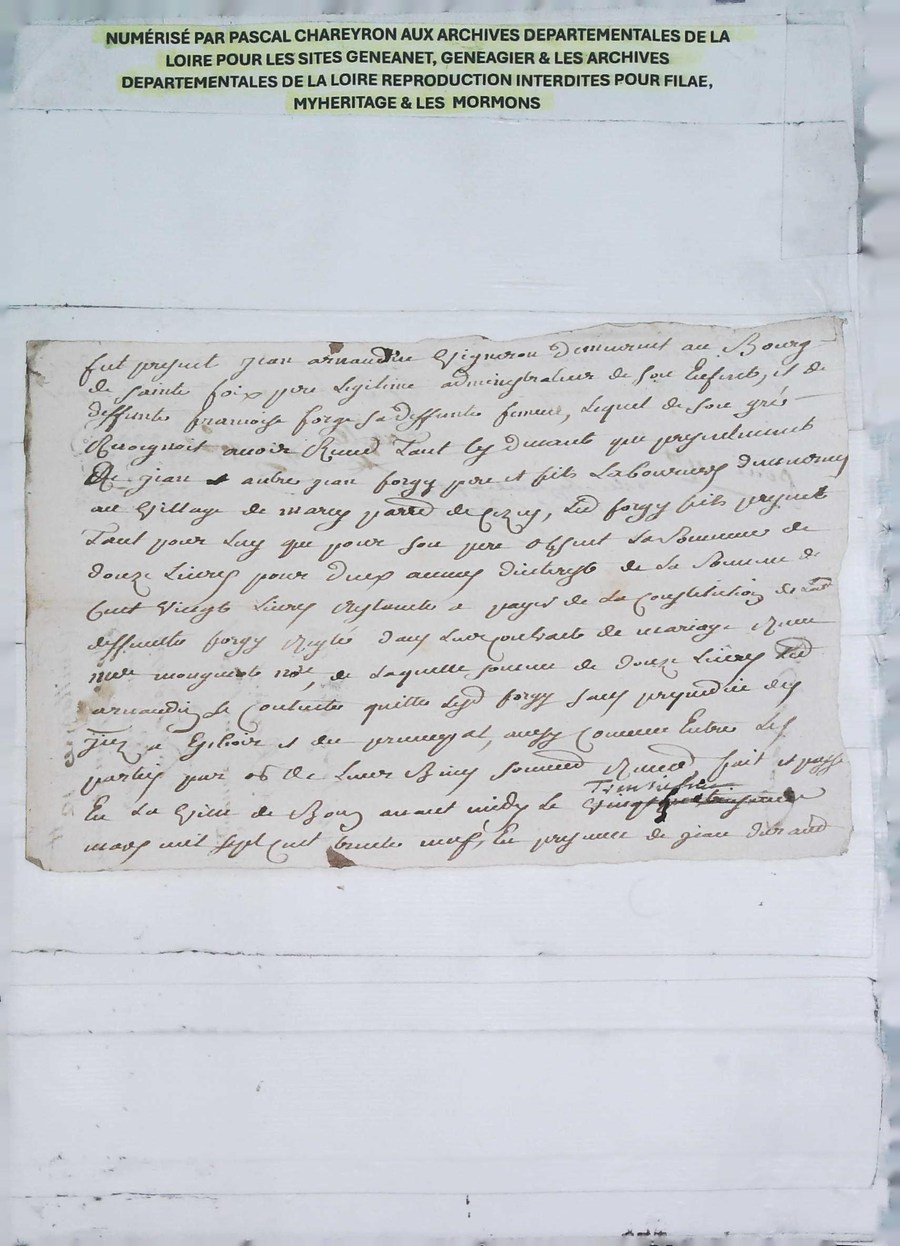 NUMÉRISÉ PAR PASCAL CHAREYRON AUX ARCHIVES DEPARTEMENTALES DE LA
LOIRE POUR LES SITES GENEANET, GENEAGIER & LES ARCHIVES
DEPARTEMENTALES DE LA LOIRE REPRODUCTION INTERDITES POUR FILAE,
MYHERITAGE & LES MORMONS
fut present jean arnaudin Vigneron demeurant au Bourg
de sainte foix pere Legitime administrateur de son Enfent, et de
deffunte francoise forge sa deffunte femme, Lequel de son gré
Recognoit avoir Receu Tant cy devant que presentement
De jean et autre jean forgy pere et fils Laboureurs demeurant
au Village de parr de Cezay, Led forgy fils present
Tant pour Luy que pour son pere absent La somme de
douze Livres pour deux annees d'interest de La Somme de
Cent Vingt Livres Restante a payer de La Constitution de lad
deffunte forgy Reglée dans Leur Contract de mariage Receu
me not, de Laquelle somme de douze Livres Led
arnaudin se Contente quitte Lesd forgy sans prejudice des
a Echoir et du principal, ainsy Comme Entre Les
parties par de Leurs Biens fait et passé
En La Ville de Boen avant midy Le
mars mil sept Cent trente neuf, En presence de jean durand